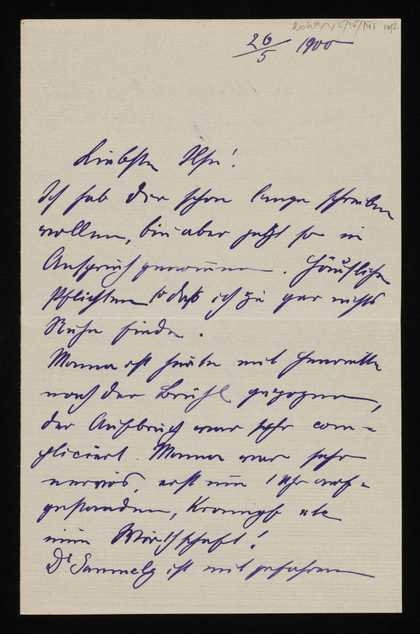 26/5 1900
Liebste Ilse!
Ich hab dir schon lange schreiben
wollen, bin aber jetzt so in
Anspruch genommen. Häusliche
Pflichten so daß ich zu gar nichts
Ruhe finde.
Mama ist heute mit Henriette
nach der Brühl gezogen,
der Aufbruch war sehr com-
pliciert. Mama war sehr
nervös, erst um 1 Uhr auf-
gestanden, Krämpfe etc
eine Wirthschaft!
Dr ist mit gefahren